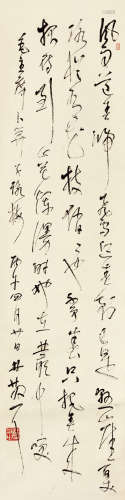 風雨送春歸飛雪迎春到已是懸崖百
丈冰猶有花枝俏〻也不爭春只把春來
報待到山花爛漫時她在叢中笑
毛主席卜算子詠梅 丙午四月廿日 林散之